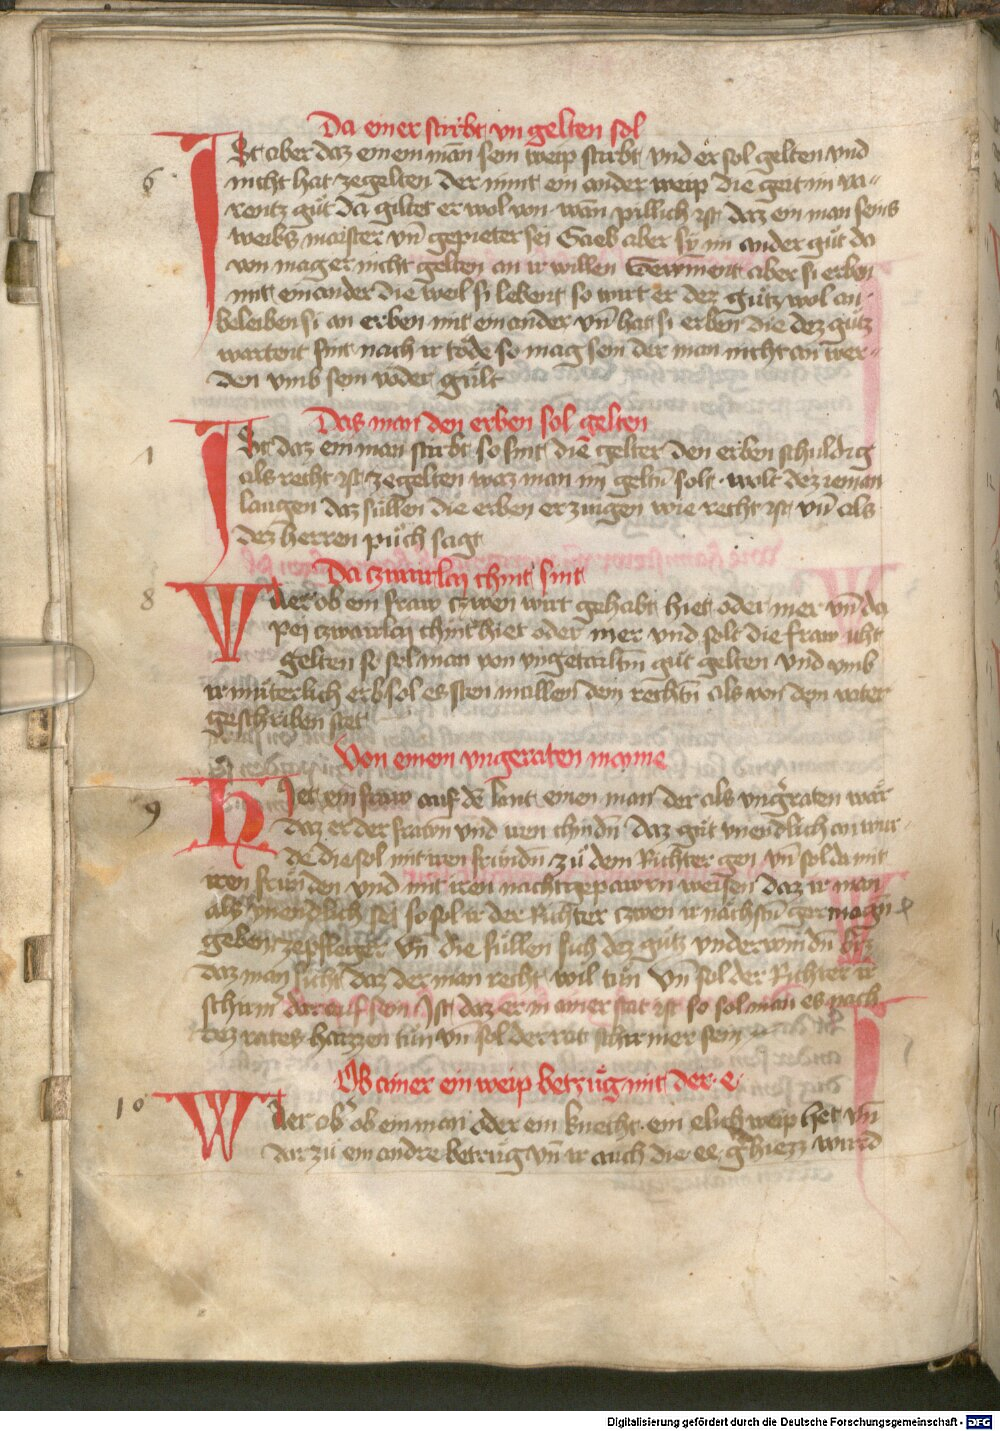 Da einer stirbt vn gelten sol
6
Ist aber daz einem man sein weip stirbt vnd er sol gelten vnd
nicht hat zegelten der nimt ein ander weip die geit im va-
rentz gůt da giltet er wol von wan pillich ist daz ein man seins
weibs maister vn̄ gepieter sei Gaeb aber sy im ander gůt da
von mag er nicht gelten an ir willen Gewinnent aber si erben
mit einander die weil si lebent so wirt er dez gůtz wol an
beleiben si an erben mit einander vn̄ hat si erben die dez gůtz
wartent sint nach ir tode so mag sein der man nicht an wer-
den vmb sein voder gůlt
Das man den erben sol gelten
Ist daz ein man stirbt so sint die gelter den erben schuldig
als recht ist zegelten waz man im geltn̄ solt wolt dez ieman
laugen daz sůllen die erben erzeugen wie recht ist vn̄ als
dez herren půch sagt
Da czwairlay chint sint
8
Waer ob ein fraw czwen wirt gehabt hiet oder mer vn̄ da
pei czwairlay chint hiet oder mer vnd solt die fraw icht
gelten so sol man von vngetailtm gůt gelten vnd vmb
ir můterlich erb sol es sten in allem dem rechtn̄ als von dem vater
geschriben stet
Von einem vngeraten manne
9
Hiet ein fraw auf dē lant einen man der als vngraten wär
daz er der frawn vnd iren chindn̄ daz gůt vnendlich an wur-
de die sol mit iren frůndn̄ zů dem Richter gen vn̄ sol da mit
iren frůnden vnd mit iren nachtgepawrn weisen daz ir man
als vnendlich sei so sol ir der Richter czwen ir nächstn̄ germagn̄
geben zepfleger Vn̄ die sůllen sich dez gůtz vnderwindn̄ biz
daz man sicht daz der man recht wil tůn Vn̄ sol der Richter ir
schirm dar auf sein Ist daz er in ainer stat ist so sol man es nach
dez rates haizzen tůn vn̄ sol der rat schirmer sein
Ob ainer ein weip betrůg mit der e
10
Waer ob ein man oder ein knecht ein elich weip het vn̄
dar zů ein andre betrůg vn̄ ir auch die ee ghiezz wurd
Digitalisierung gefördert durch die Deutsche Forschungsgemeinschaft - DFG